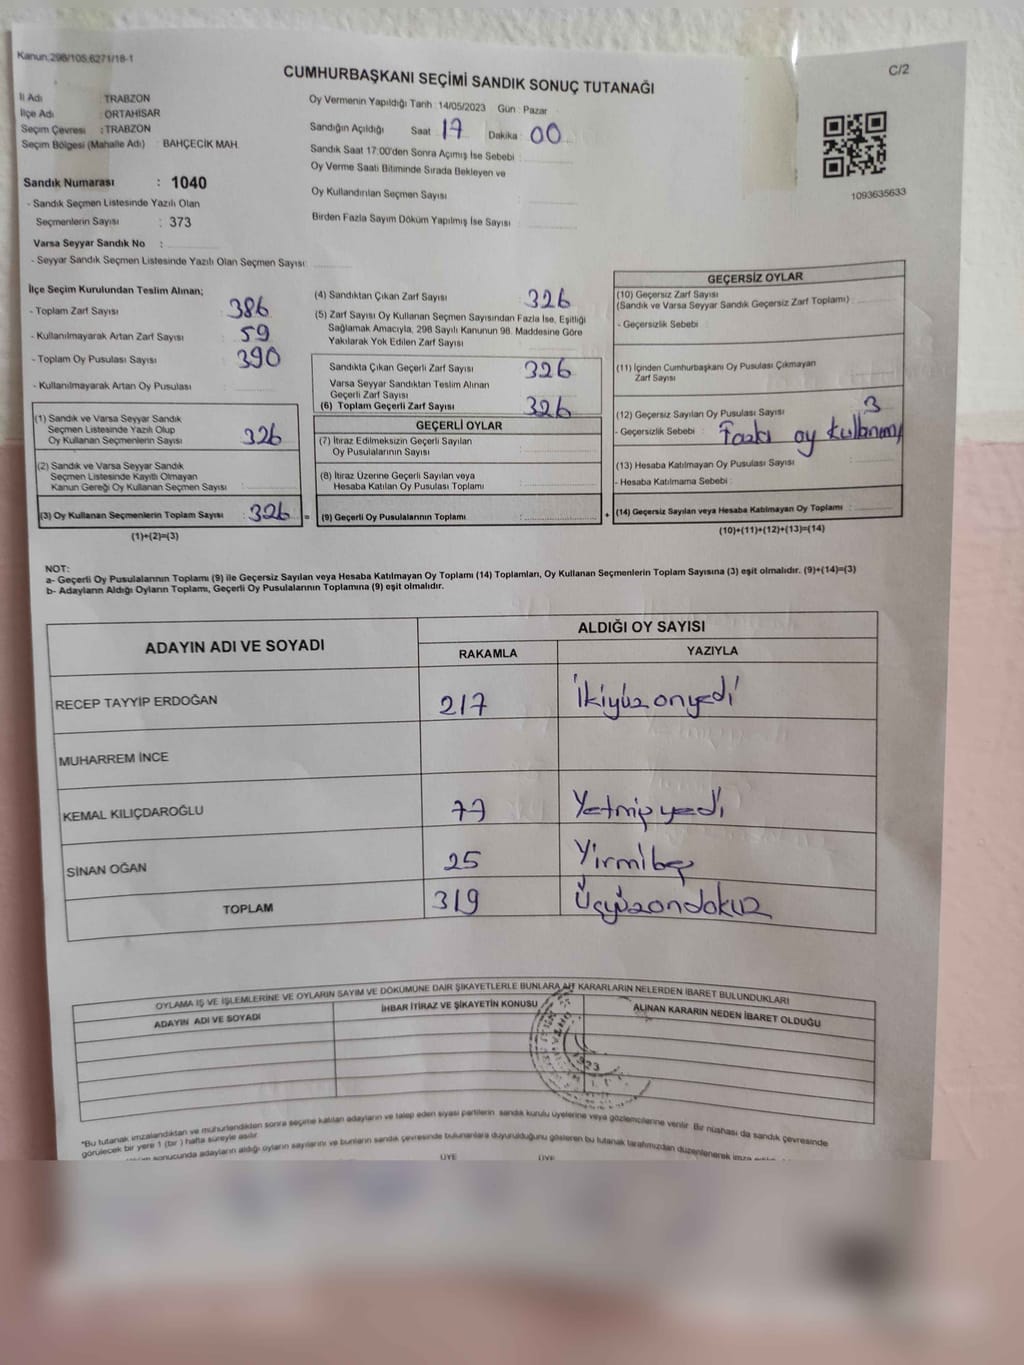 Kanun:298/105,6271/18-1
C/2
CUMHURBAŞKANI SEÇİMİ SANDIK SONUÇ TUTANAĞI
İl Adı : TRABZON
İlçe Adı : ORTAHİSAR
Seçim Çevresi : TRABZON
Seçim Bölgesi (Mahalle Adı) : BAHÇECİK MAH.
Sandık Numarası : 1040
- Sandık Seçmen Listesinde Yazılı Olan
Seçmenlerin Sayısı : 373
Varsa Seyyar Sandık No :
- Seyyar Sandık Seçmen Listesinde Yazılı Olan Seçmen Sayısı:
Oy Vermenin Yapıldığı Tarih :14/05/2023 Gün : Pazar
Sandığın Açıldığı Saat 17 Dakika 00
Sandık Saat 17:00'den Sonra Açılmış İse Sebebi :
Oy Verme Saati Bitiminde Sırada Bekleyen ve
Oy Kullandırılan Seçmen Sayısı :
Birden Fazla Sayım Döküm Yapılmış İse Sayısı :
1093635633
İlçe Seçim Kurulundan Teslim Alınan;
- Toplam Zarf Sayısı : 386
- Kullanılmayarak Artan Zarf Sayısı : 59
- Toplam Oy Pusulası Sayısı : 390
- Kullanılmayarak Artan Oy Pusulası :
(1) Sandık ve Varsa Seyyar Sandık
Seçmen Listesinde Yazılı Olup
Oy Kullanan Seçmenlerin Sayısı : 326
(2) Sandık ve Varsa Seyyar Sandık
Seçmen Listesinde Kayıtlı Olmayan
Kanun Gereği Oy Kullanan Seçmen Sayısı :
(3) Oy Kullanan Seçmenlerin Toplam Sayısı : 326 =
(1)+(2)=(3)
(4) Sandıktan Çıkan Zarf Sayısı : 326
(5) Zarf Sayısı Oy Kullanan Seçmen Sayısından Fazla İse, Eşitliği
Sağlamak Amacıyla, 298 Sayılı Kanunun 98. Maddesine Göre
Yakılarak Yok Edilen Zarf Sayısı :
Sandıkta Çıkan Geçerli Zarf Sayısı : 326
Varsa Seyyar Sandıktan Teslim Alınan
Geçerli Zarf Sayısı :
(6) Toplam Geçerli Zarf Sayısı : 326
GEÇERLİ OYLAR
(7) İtiraz Edilmeksizin Geçerli Sayılan
Oy Pusulalarının Sayısı :
(8) İtiraz Üzerine Geçerli Sayılan veya
Hesaba Katılan Oy Pusulası Toplamı :
(9) Geçerli Oy Pusulalarının Toplamı : +
GEÇERSİZ OYLAR
(10) Geçersiz Zarf Sayısı
(Sandık ve Varsa Seyyar Sandık Geçersiz Zarf Toplamı) :
- Geçersizlik Sebebi :
(11) İçinden Cumhurbaşkanı Oy Pusulası Çıkmayan
Zarf Sayısı :
(12) Geçersiz Sayılan Oy Pusulası Sayısı : 3
- Geçersizlik Sebebi : Fazla oy kullanımı
(13) Hesaba Katılmayan Oy Pusulası Sayısı :
- Hesaba Katılmama Sebebi :
(14) Geçersiz Sayılan veya Hesaba Katılmayan Oy Toplamı :
(10)+(11)+(12)+(13)=(14)
NOT:
a- Geçerli Oy Pusulalarının Toplamı (9) ile Geçersiz Sayılan veya Hesaba Katılmayan Oy Toplamı (14) Toplamları, Oy Kullanan Seçmenlerin Toplam Sayısına (3) eşit olmalıdır. (9)+(14)=(3)
b- Adayların Aldığı Oyların Toplamı, Geçerli Oy Pusulalarının Toplamına (9) eşit olmalıdır.
ADAYIN ADI VE SOYADI
ALDIĞI OY SAYISI
RAKAMLA YAZIYLA
RECEP TAYYİP ERDOĞAN 217 İkiyüzonyedi
MUHARREM İNCE
KEMAL KILIÇDAROĞLU 77 Yetmişyedi
SİNAN OĞAN 25 Yirmibeş
TOPLAM 319 Üçyüzondokuz
OYLAMA İŞ VE İŞLEMLERİNE VE OYLARIN SAYIM VE DÖKÜMÜNE DAİR ŞİKAYETLERLE BUNLARA AİT KARARLARIN NELERDEN İBARET BULUNDUKLARI
ADAYIN ADI VE SOYADI İHBAR İTİRAZ VE ŞİKAYETİN KONUSU ALINAN KARARIN NEDEN İBARET OLDUĞU
1923
*Bu tutanak imzalandıktan ve mühürlendikten sonra seçime katılan adayların ve talep eden siyasi partilerin sandık kurulu üyelerine veya gözlemcilerine verilir. Bir nüshası da sandık çevresinde
görülecek bir yere 1 (bir ) hafta süreyle asılır.
sonucunda adayların aldığı oyların sayılarını ve bunların sandık çevresinde bulunanlara duyurulduğunu gösteren bu tutanak tarafımızdan düzenlenerek imza
ÜYE ÜYE